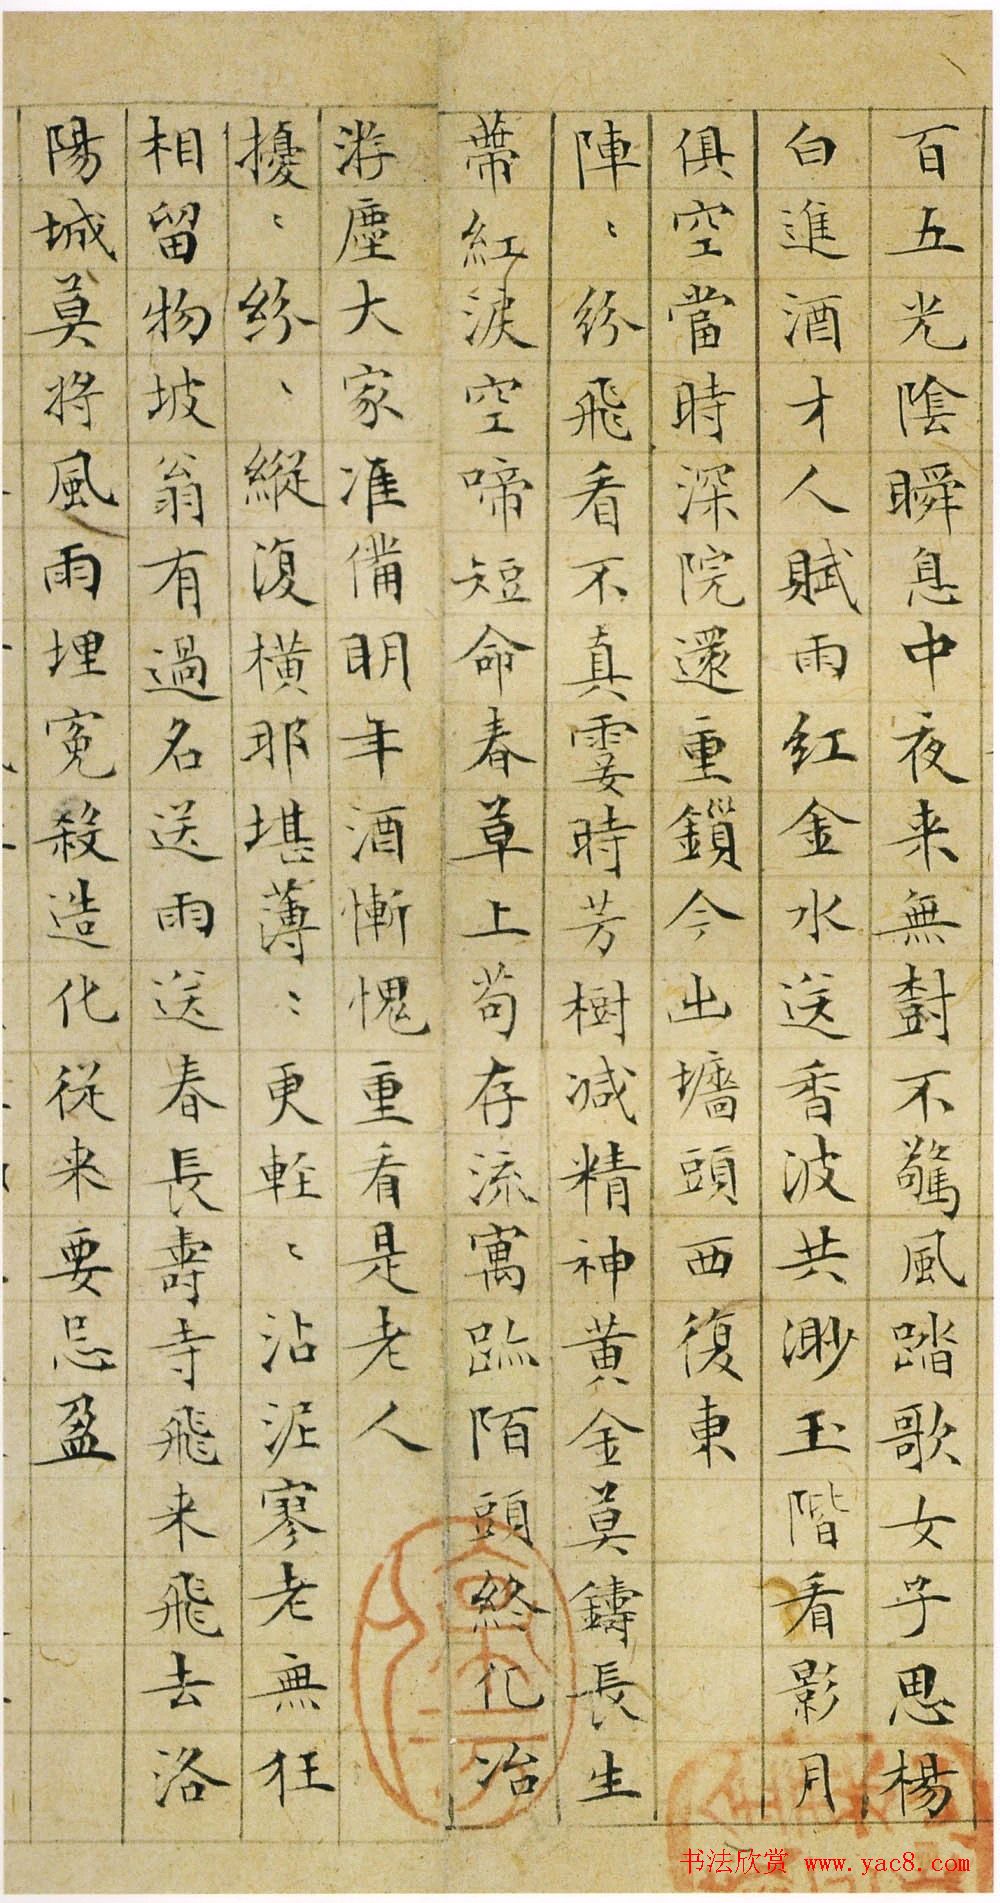 百五光陰瞬息中夜来無對不驚風踏歌女子思楊
白進酒才人賦雨紅金水送香波共渺玉階看影月
俱空當時深院還重鎖今出墻頭西復東
陣〻紛飛看不真霎時芳樹减精神黄金莫鑄長生
蔕紅淚空啼短命春草上苟存流寓跡陌頭終化冶
游塵大家准備明年酒慚愧重看是老人
擾〻紛〻縱復横那堪薄〻更輕〻沾泥寥老無狂
相留物坡翁有過名送雨送春長壽寺飛来飛去洛
陽城莫將風雨埋冤殺造化從来要忌盈
书法欣赏 www.yac8.com